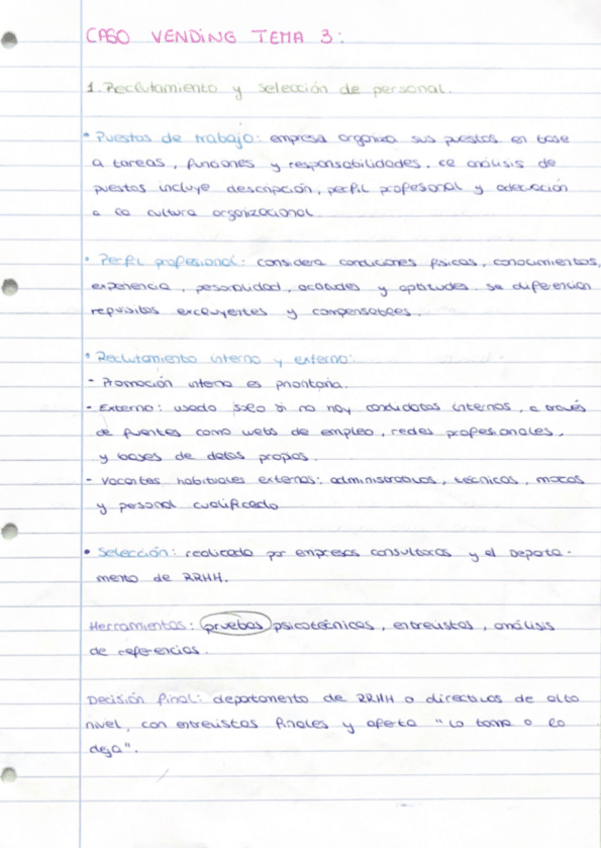 CASO VENDING TEMA 3:
1. Reclutamiento y selección de personal.
• Puestos de trabajo: empresa organiza sus puestos en base
a tareas, funciones y responsabilidades. el análisis de
puestos incluye descripción, perfil profesional y adecuación
a la cultura organizacional.
• Perfil profesional: considera condiciones físicas, conocimientos,
experiencia, personalidad, actitudes y aptitudes. se diferencian
requisitos excluyentes y compensables.
• Reclutamiento interno y externo:
- Promoción interna es prioritaria.
- Externo: usado solo si no hay candidatos internos, a través
de fuentes como webs de empleo, redes profesionales,
y bases de datos propias.
- Vacantes habituales externas: administrativos, técnicos, mozos
y personal cualificado
• Selección: realizada por empresas consultoras y el Departa-
mento de RRHH.
Herramientas: pruebas psicotécnicas, entrevistas, análisis
de referencias.
Decisión final: departamento de RRHH o directivos de alto
nivel, con entrevistas finales y oferta "lo toma o lo
deja".